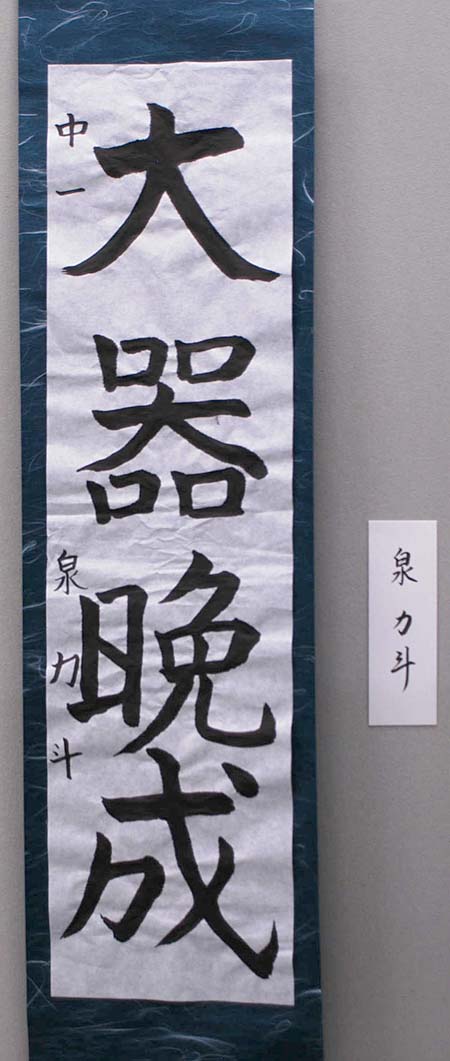 大器晩成
中一 泉力斗
泉力斗